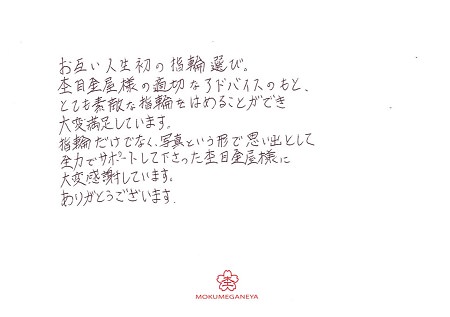 お互い人生初の指輪選び。
杢目金屋様の適切なアドバイスのもと、
とても素敵な指輪をはめることができ
大変満足しています。
指輪だけでなく、写真という形で思い出として
全力でサポートして下さった杢目金屋様に
大変感謝しています。
ありがとうございます.
杢
MOKUMEGANEYA